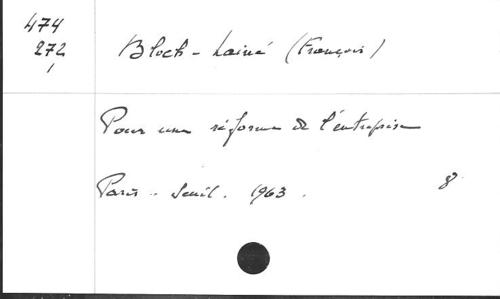 474
272
1
Bloch-Lainé (François)
Pour une réforme de l'entreprise
Paris. Seuil. 1963.
8°